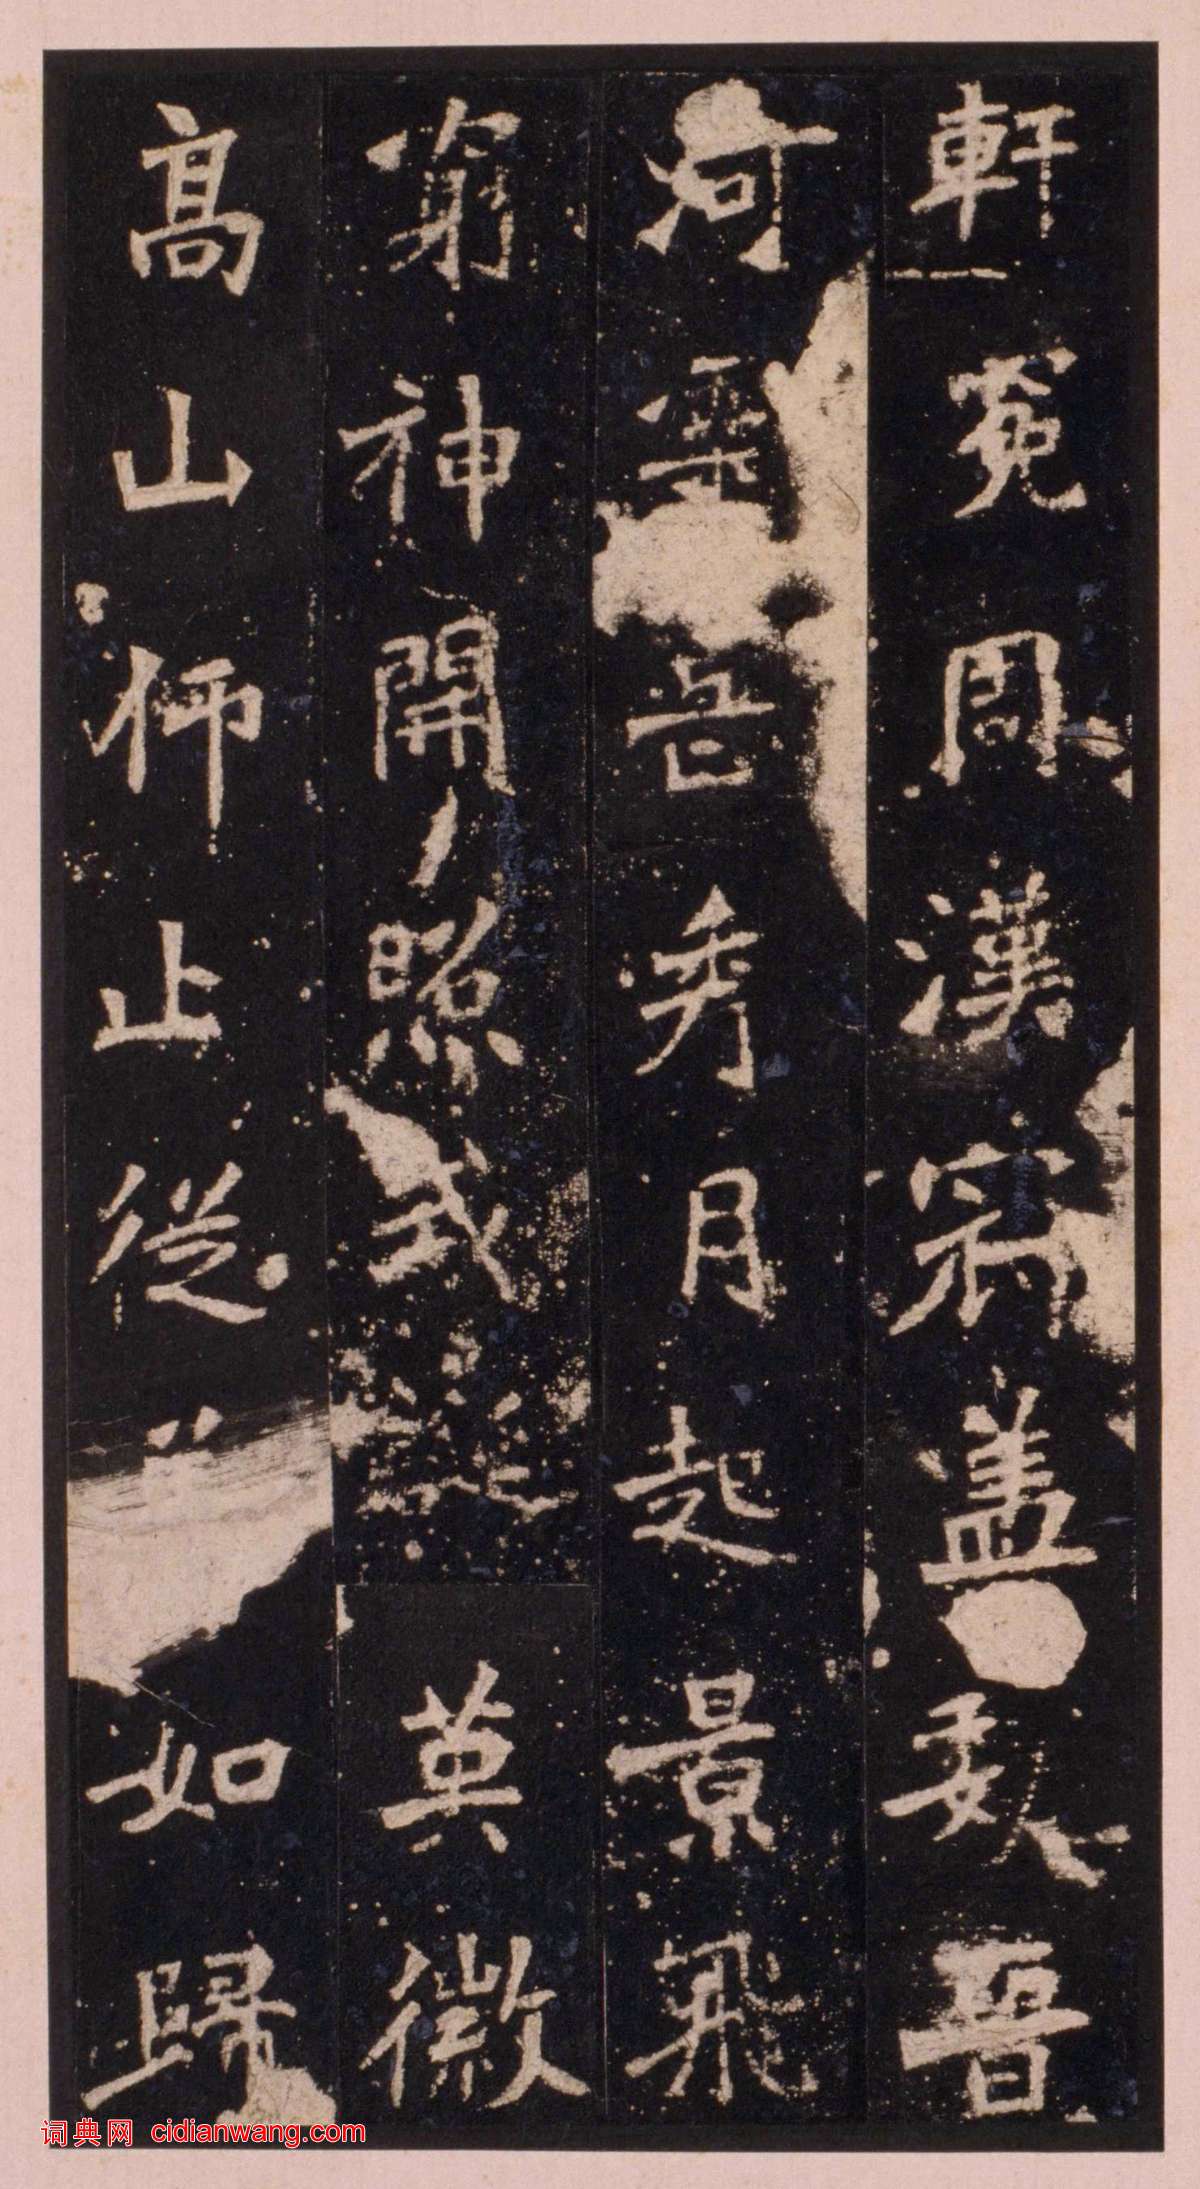 軒冕周漢冠盖魏晉
河靈岳秀月起景飛
窮神開照式英徽
高山仰止從如歸
词典网 cidianwang.com